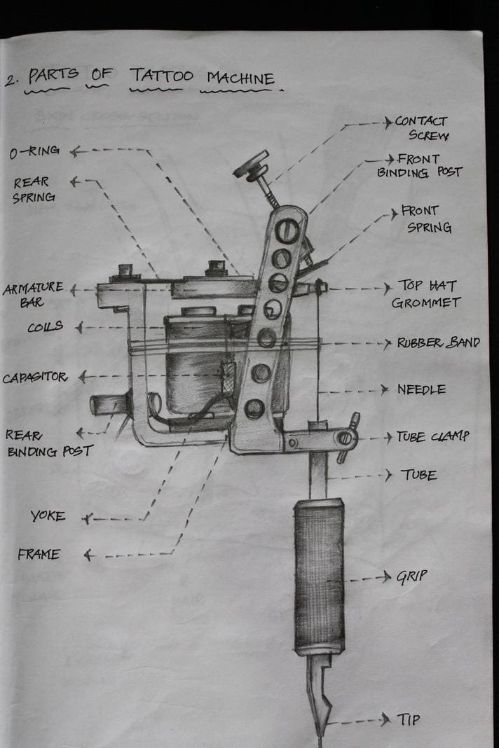 2. PARTS OF TATTOO MACHINE.
O-RING
REAR
SPRING
ARMATURE
BAR
COILS
CAPASITOR
REAR
BINDING POST
YOKE
FRAME
CONTACT
SCREW
FRONT
BINDING POST
FRONT
SPRING
TOP HAT
GROMMET
RUBBER BAND
NEEDLE
TUBE CLAMP
TUBE
GRIP
TIP